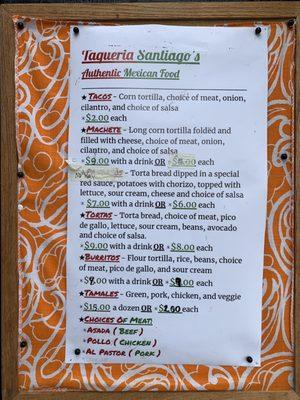 Taqueria Santiago's
Authentic Mexican Food
★Tacos - Corn tortilla, choice of meat, onion,
cilantro, and choice of salsa
×$2.00 each
★Machete - Long corn tortilla folded and
filled with cheese, choice of meat, onion,
cilantro, and choice of salsa
×$9.00 with a drink OR ×$8.00 each
- Torta bread dipped in a special
red sauce, potatoes with chorizo, topped with
lettuce, sour cream, cheese and choice of salsa
×$7.00 with a drink OR ×$6.00 each
★Tortas - Torta bread, choice of meat, pico
de gallo, lettuce, sour cream, beans, avocado
and choice of salsa.
×$9.00 with a drink OR ×$8.00 each
★Burritos - Flour tortilla, rice, beans, choice
of meat, pico de gallo, and sour cream
with a drink OR each
★Tamales - Green, pork, chicken, and veggie
×$15.00 a dozen OR ×$2.00 each
★Choices Of Meat:
×Asada ( Beef )
×Pollo ( Chicken )
×Al Pastor ( Pork )